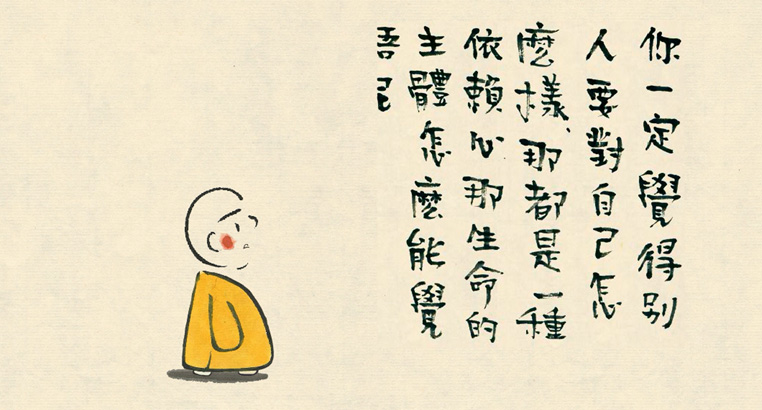 你一定覺得别
人要對自己怎
麼樣、那都是一種
依賴心那生命的
主體怎麼能覺
吾己